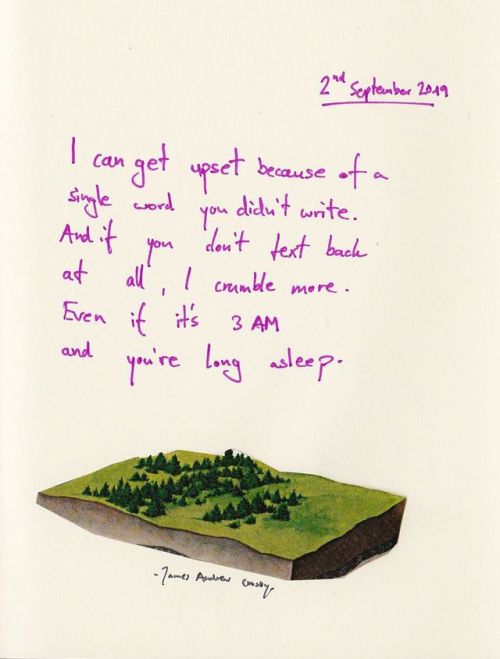 2nd September 2019
I can get upset because of a
single word you didn't write.
And if you don't text back
at all, I crumble more.
Even if it's 3 AM
and you're long asleep.
- James Andrew Crosby